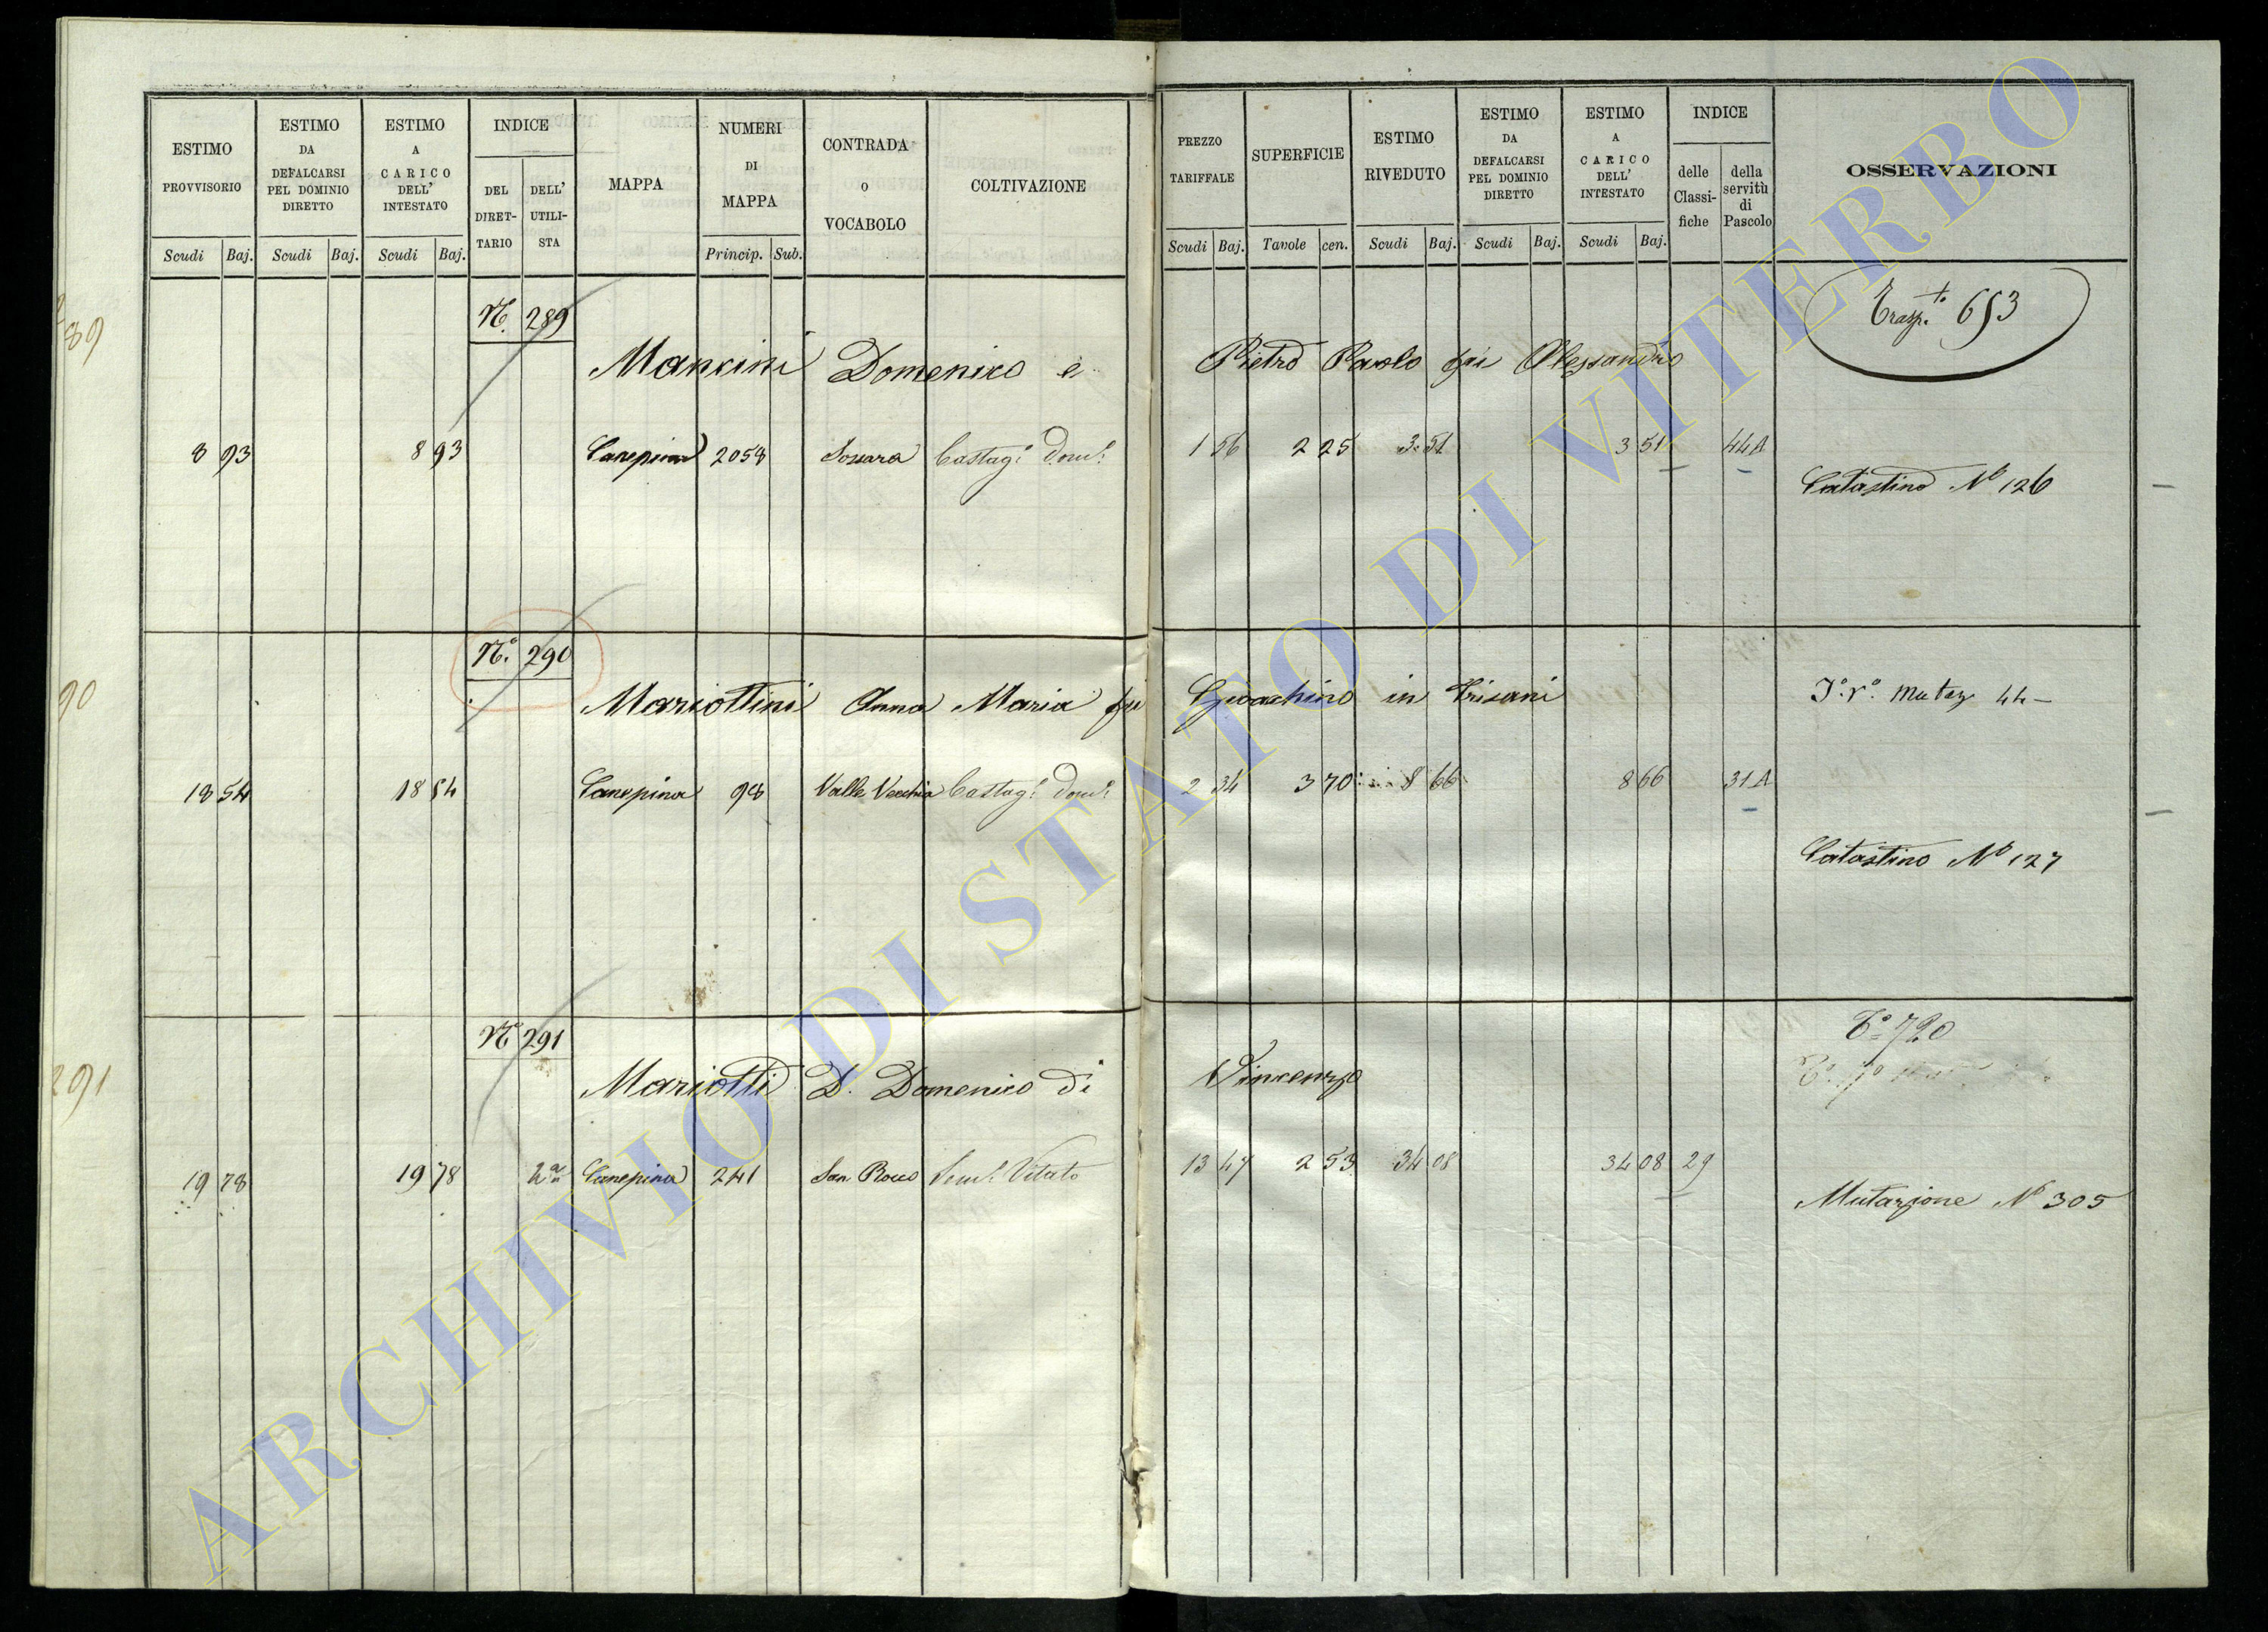 ESTIMO PROVVISORIO
Scudi Baj.
ESTIMO DA DEFALCARSI PEL DOMINIO DIRETTO
Scudi Baj.
ESTIMO A CARICO DELL' INTESTATO
Scudi Baj.
INDICE
DEL DIRET-TARIO
DELL' UTILI-STA
MAPPA
NUMERI DI MAPPA
Princip. Sub.
CONTRADA o VOCABOLO
COLTIVAZIONE
PREZZO TARIFFALE
Scudi Baj.
SUPERFICIE
Tavole cen.
ESTIMO RIVEDUTO
Scudi Baj.
ESTIMO DA DEFALCARSI PEL DOMINIO DIRETTO
Scudi Baj.
ESTIMO A CARICO DELL' INTESTATO
Scudi Baj.
INDICE
delle Classi-fiche
della servitù di Pascolo
OSSERVAZIONI
289
N. 289
Trasp.to 653
Mancini Domenico e Pietro Paolo fu Alessandro
8 93 8 93 Canepina 2058 Castag. Dom. 1 56 2 25 3 51 3 51 44A
Catastino No 126
90
No. 290
Mariottini Anna Maria fu Gioachino in Grisani
Mutaz 44
18 54 18 54 Canepina 98 Valle Vecchia Castag. Dom. 2 34 3 70 8 66 8 66 31A
Catastino No 127
291
No 291
To 720
Mariotti D. Domenico di Vincenzo
19 78 19 78 Canepina 241 San Rocco Sem. Vitato 13 47 2 53 34 08 34 08 29
Mutazione No 305
ARCHIVIO DI STATO DI VITERBO